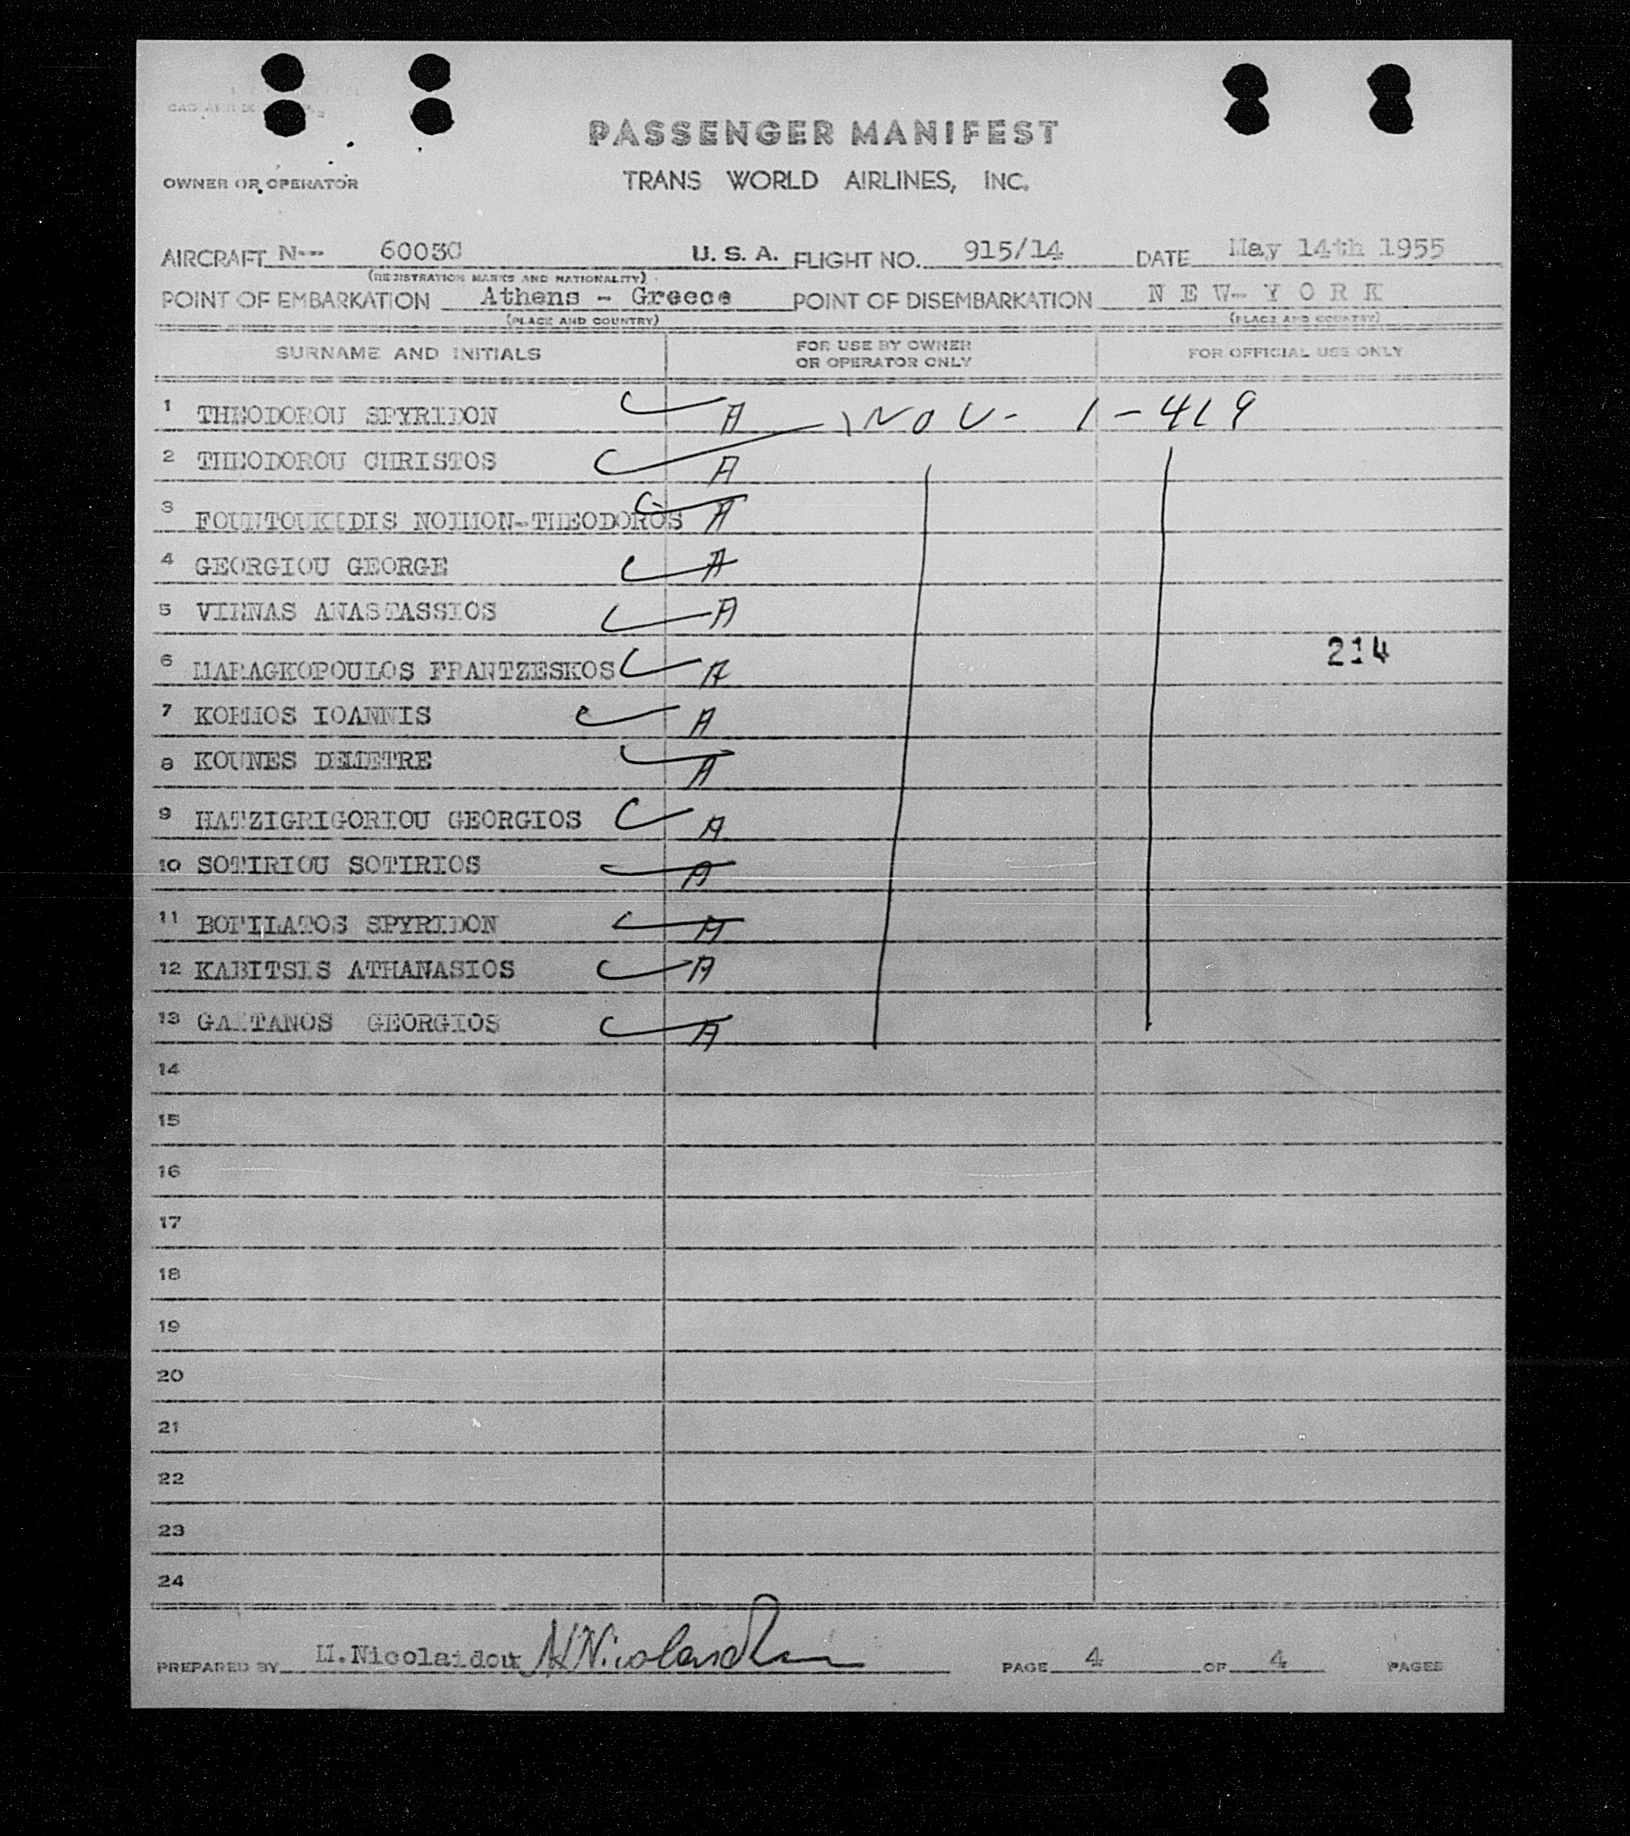 PASSENGER MANIFEST
OWNER OR OPERATOR
TRANS WORLD AIRLINES, INC.
AIRCRAFT N-- 6003C U. S. A. FLIGHT NO. 915/14 DATE May 14th 1955
(REGISTRATION MARKS AND NATIONALITY)
POINT OF EMBARKATION Athens - Greece POINT OF DISEMBARKATION N E W- Y O R K
(PLACE AND COUNTRY) (PLACE AND COUNTRY)
SURNAME AND INITIALS FOR USE BY OWNER OR OPERATOR ONLY FOR OFFICIAL USE ONLY
1 THEODOROU SPYRIDON A NOV- 1-419
2 THEODOROU CHRISTOS A
3 FOUNTOUKIDIS NOIMON-THEODOROS A
4 GEORGIOU GEORGE A
5 VIENAS ANASTASSIOS A
214
6 MARAGKOPOULOS FRANTZESKOS A
7 KORMOS IOANNIS A
8 KOUNES DEMETRE A
9 HATZIGRIGORIOU GEORGIOS A
10 SOTIRIOU SOTIRIOS A
11 BOFILATOS SPYRIDON A
12 KABITSIS ATHANASIOS A
13 GAITANOS GEORGIOS A
14
15
16
17
18
19
20
21
22
23
24
PREPARED BY M.Nicolaidou M Nicolaidou PAGE 4 OF 4 PAGES